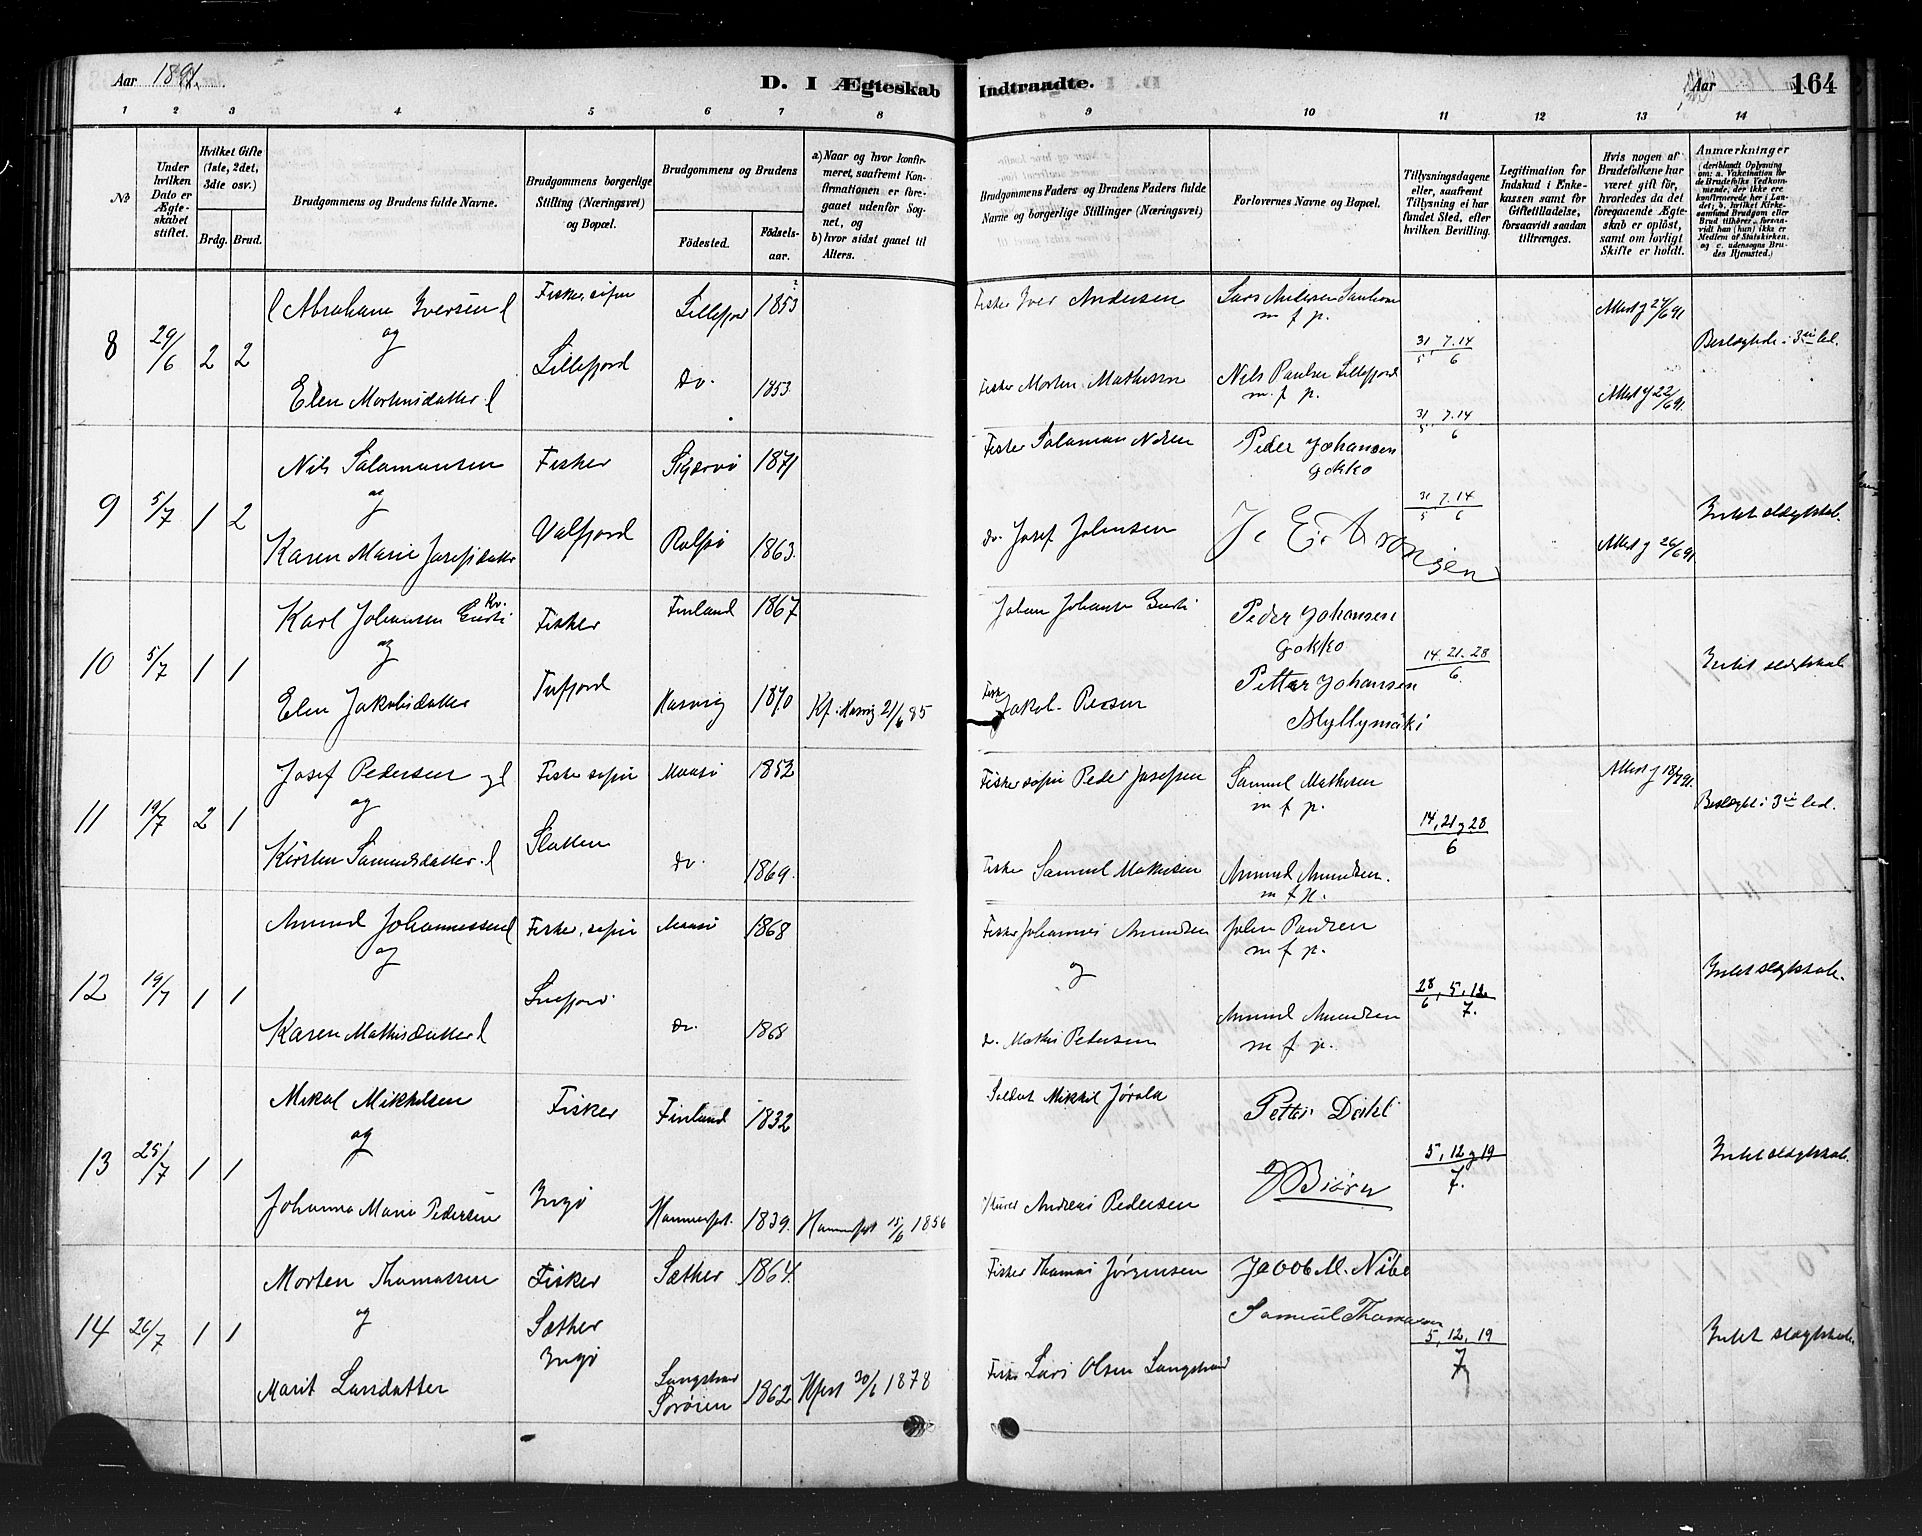 Aar 1891.
D. I Ægteskab Indtraadte.
Aar
164
1 2 3 4 5 6 7 8 9 10 11 12 13 14
No
Under hvilken Dato er Ægteskabet stiftet.
Hvilket Gifte (1ste, 2det, 3die osv.)
Brdg. Brud.
Brudgommens og Brudens fulde Navne.
Brudgommens borgerlige Stilling (Næringsvei) og Bopæl.
Brudgommens og Brudens
Fødested.
Fødselsaar.
a) Naar og hvor konfirmeret, saafremt Konfirmationen er foregaaet udenfor Sognet, og
b) hvor sidst gaaet til Alters.
Brudgommens Faders og Brudens Faders fulde Navne og borgerlige Stillinger (Næringsvei)
Forlovernes Navne og Bopæl.
Tillysningsdagene eller, saafremt Tillysning ei har fundet Sted, efter hvilken Bevilling.
Legitimation for Indskud i Enkekassen samt for Giftetilladelse, forsaavidt saadan tiltrænges.
Hvis nogen af Brudefolkene har været gift før, hvorledes da det foregaaende Ægteskab er opløst, samt om lovligt Skifte er holdt.
Anmærkninger
(deriblandt Oplysning om: a. Vakcination for de Brudefolks Vedkommende, der ikke ere konfirmerede her i Landet; b. hvilket Kirkesamfund Brudgom eller Brud tilhører, forsaavidt han (hun) ikke er Medlem af Statskirken. og c. udensogns Brudes Hjemsted.)
8 29/6 2 2
Abraham Iversen og Elen Mortensdatter
Fisker, søfin Lillefjord
Lillefjord 1853
do. 1853
Fisker Iver Andersen
Fisker Morten Mathisen
Lars Andersen
m f p.
Nils Paulsen Lillefjord
m. f p.
31/5 7.14/6
Attest g 27/6 91
Attest g 22/6 91.
Beslægtede i 3die led.
9 5/7 1 2
Nils Salamonsen og Karen Marie Josefsdatter
Fisker Valfjord
Skjervø 1871
Rolfsø 1863.
Fisker Salamon Nilsen
do. Josef Johnsen
Peder Johansen Gokko
J. E. Aronsen
31/5 7.14/6
31/5 7.14/6
Attest g 26/6 91.
Intet slægtskab.
10 5/7 1 1
Karl Johansen og Elen Jakobsdatter
Fisker Tufjord
Finland 1867
Hasvig 1870
Kf. Hasvig 21/6 85
Johan Johansen
Fisk Jakob Persen
Peder Johansen Gokko
Petter Johansen Myllymäki
14.21.28/6.
Intet slægtskab
11 19/7 2 1
Josef Pedersen og Kirsten Samuelsdatter
Fisker søfin Slotten
Maasø 1852
do. 1869.
Fisker søfin Peder Josefsen
Fisker Samuel Mathisen
Samuel Mathisen
m f p.
Amund Amundsen.
m f p.
14, 21 g 28/6
Attest g 18/7 91.
Beslægtet i 3die led.
12 19/7 1 1
Amund Johannessen og Karen Mathisdatter
Fisker, søfin Snefjord.
Maasø 1868
do. 1868
Fisker Johannes Amundsen og
do. Mathis Pedersen
John Paulsen
m f p.
Amund Amundsen
m f p.
28/6, 5, 12/7.
Intet slægtskab.
13 25/7 1 1
Mikal Mikkelsen og Johanna Marie Pedersen
Fisker Ingø
Finland 1832
Hammerfest. 1839.
Hammerfest 15/6 1856
Soldat Mikkil
Andreas Pedersen
Petter Dahl
J Bjørn
5, 12 g 19/7.
Intet slægtskab.
14 26/7 1 1
Morten Thomassen og Marit Larsdatter
Fisker Sæther Ingø
Sæther 1864.
Langstrand Sørøien 1862
Hfest 30/6 1878
Fisker Thomas Jørgensen
Fisker Lars Olsen Langstrand
Jacob M. Nibe
Samuel Thomassen
5, 12, 19/7
Intet slægtskab.